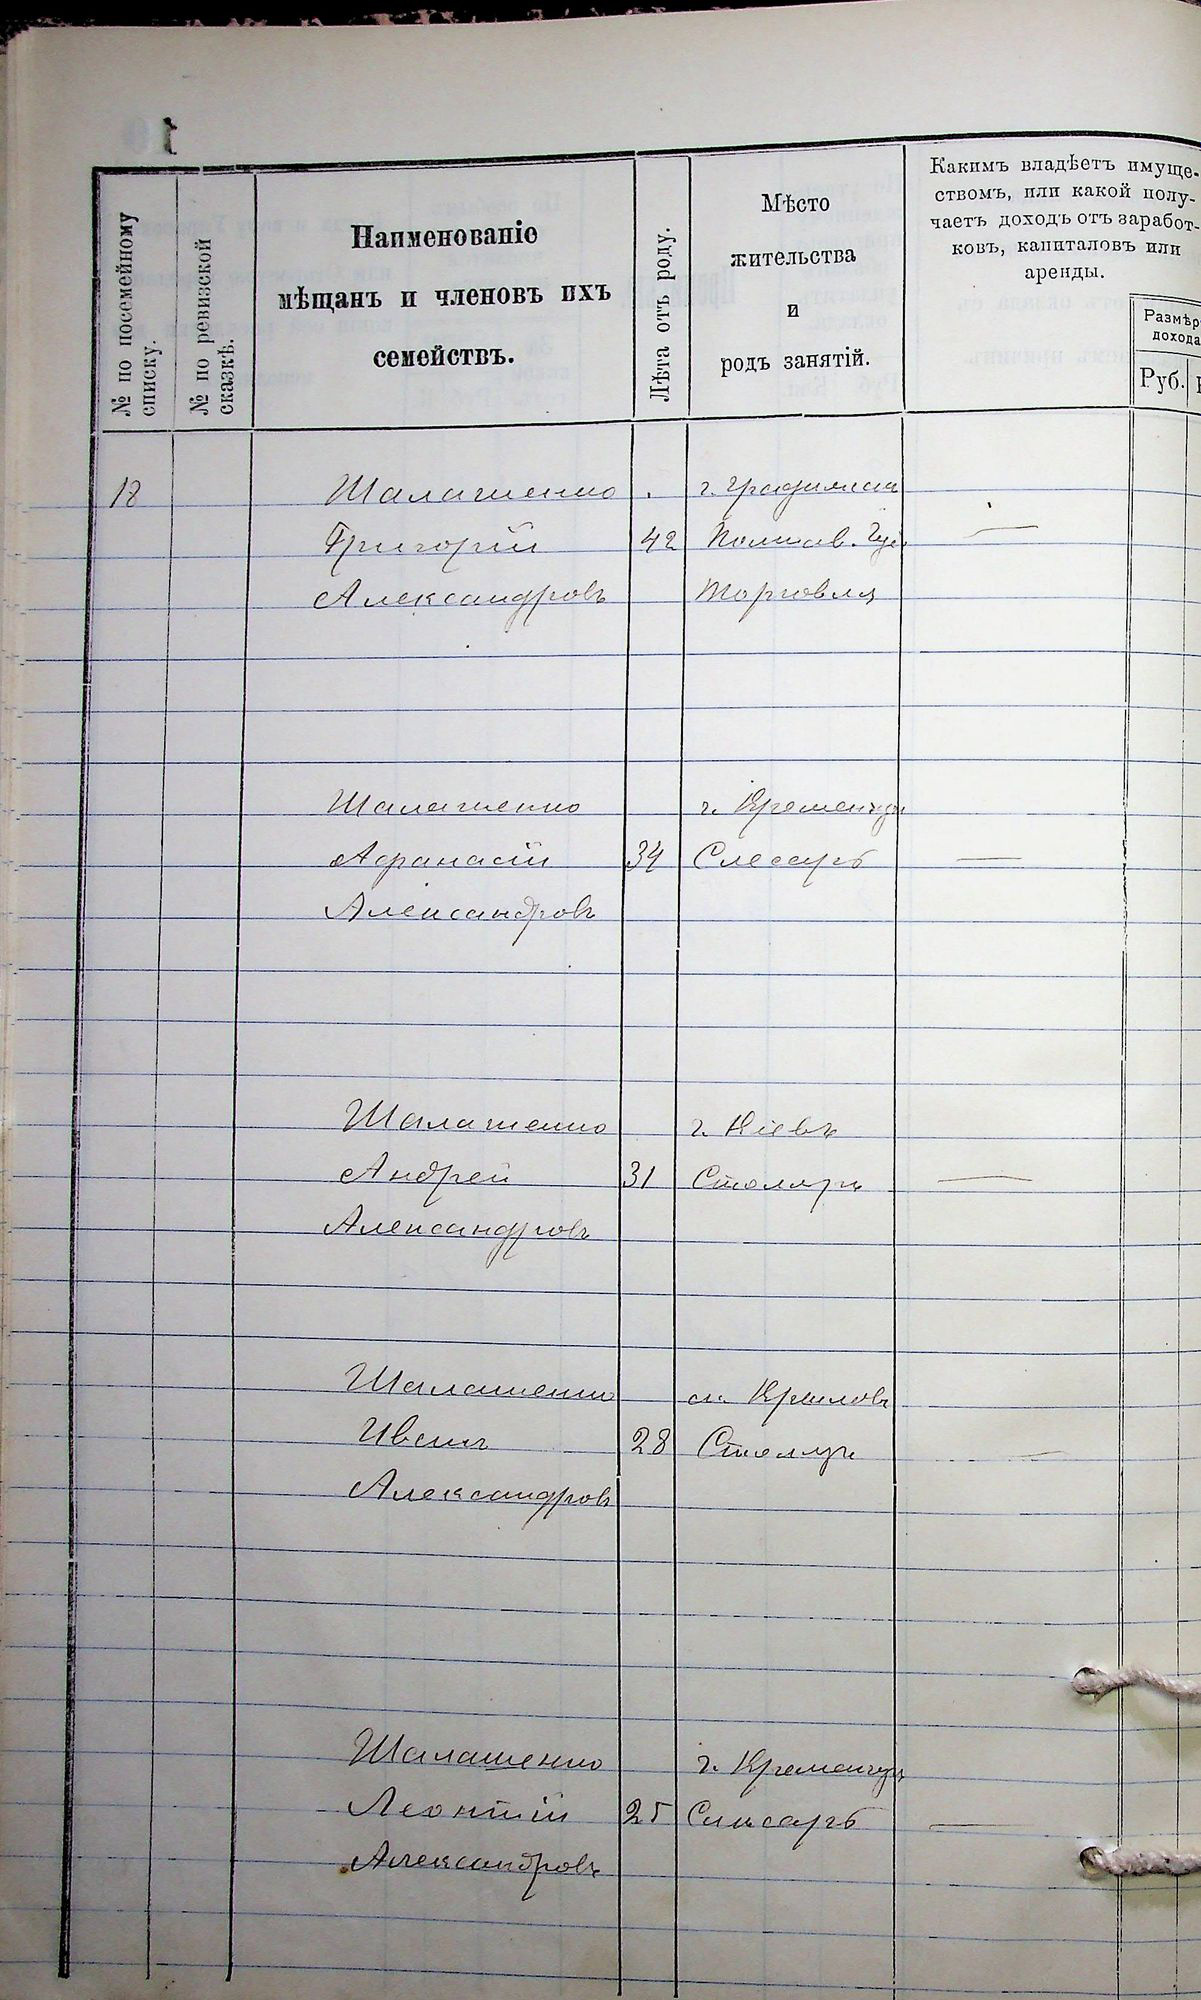 № по посемейному
списку.
№ по ревизской
сказкѣ.
Наименованіе
мѣщанъ и членовъ ихъ
семействъ.
Лѣта отъ роду.
Мѣсто
жительства
и
родъ занятій.
Какимъ владѣетъ имуще-
ствомъ, или какой полу-
чаетъ доходъ отъ заработ-
ковъ, капиталовъ или
аренды.
Размѣр
дохода
Руб.
18 Шалашенко г. Градижск
Григорій 42 Полтав. Губ.
Александровъ Торговля
Шалашенко г. Кременчуг
Афанасій 34 Слесарь
Александровъ
Шалашенко г. Кіевъ
Андрей 31 Столяръ
Александровъ
Шалашенко м. Крыловъ
Иванъ 28 Столяръ
Александровъ
Шалашенко г. Кременчуг
Леонтій 25 Слесарь
Александровъ